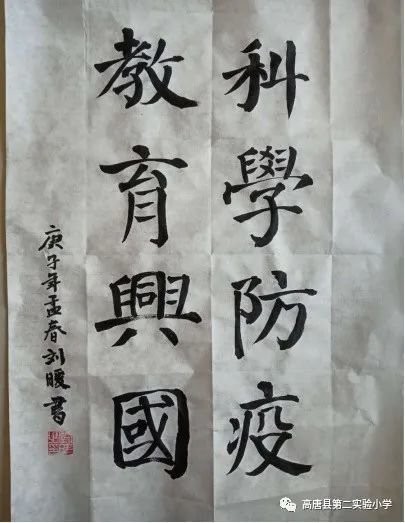 科學防疫
教育興國
庚子年孟春刘暖書
高唐县第二实验小学